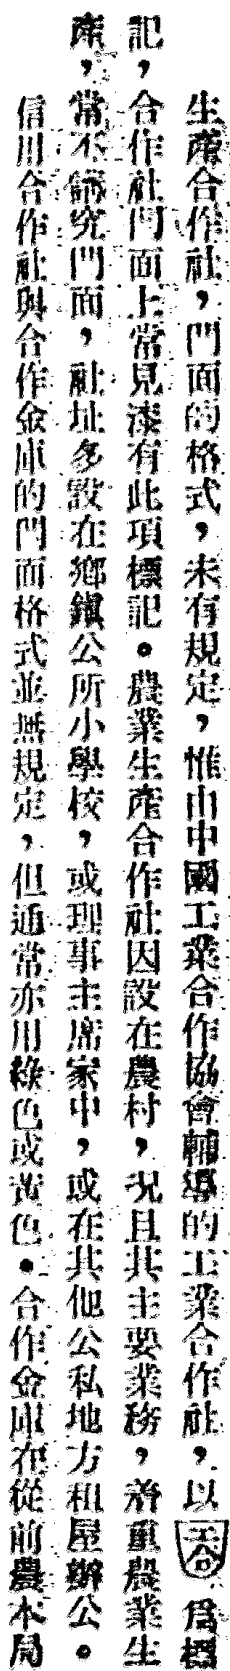 生產合作社，門面的格式，未有規定，惟由中國工業合作協會輔導的工業合作社，以工合爲標
記，合作社門面上常見漆有此項標記。農業生產合作社因設在農村，況且其主要業務，着重農業生
產，常不講究門面，社址多設在鄉鎮公所小學校，或理事主席家中，或在其他公私地方租屋辦公。
信用合作社與合作金庫的門面格式並無規定，但通常亦用綠色或黃色。合作金庫在從前農本局